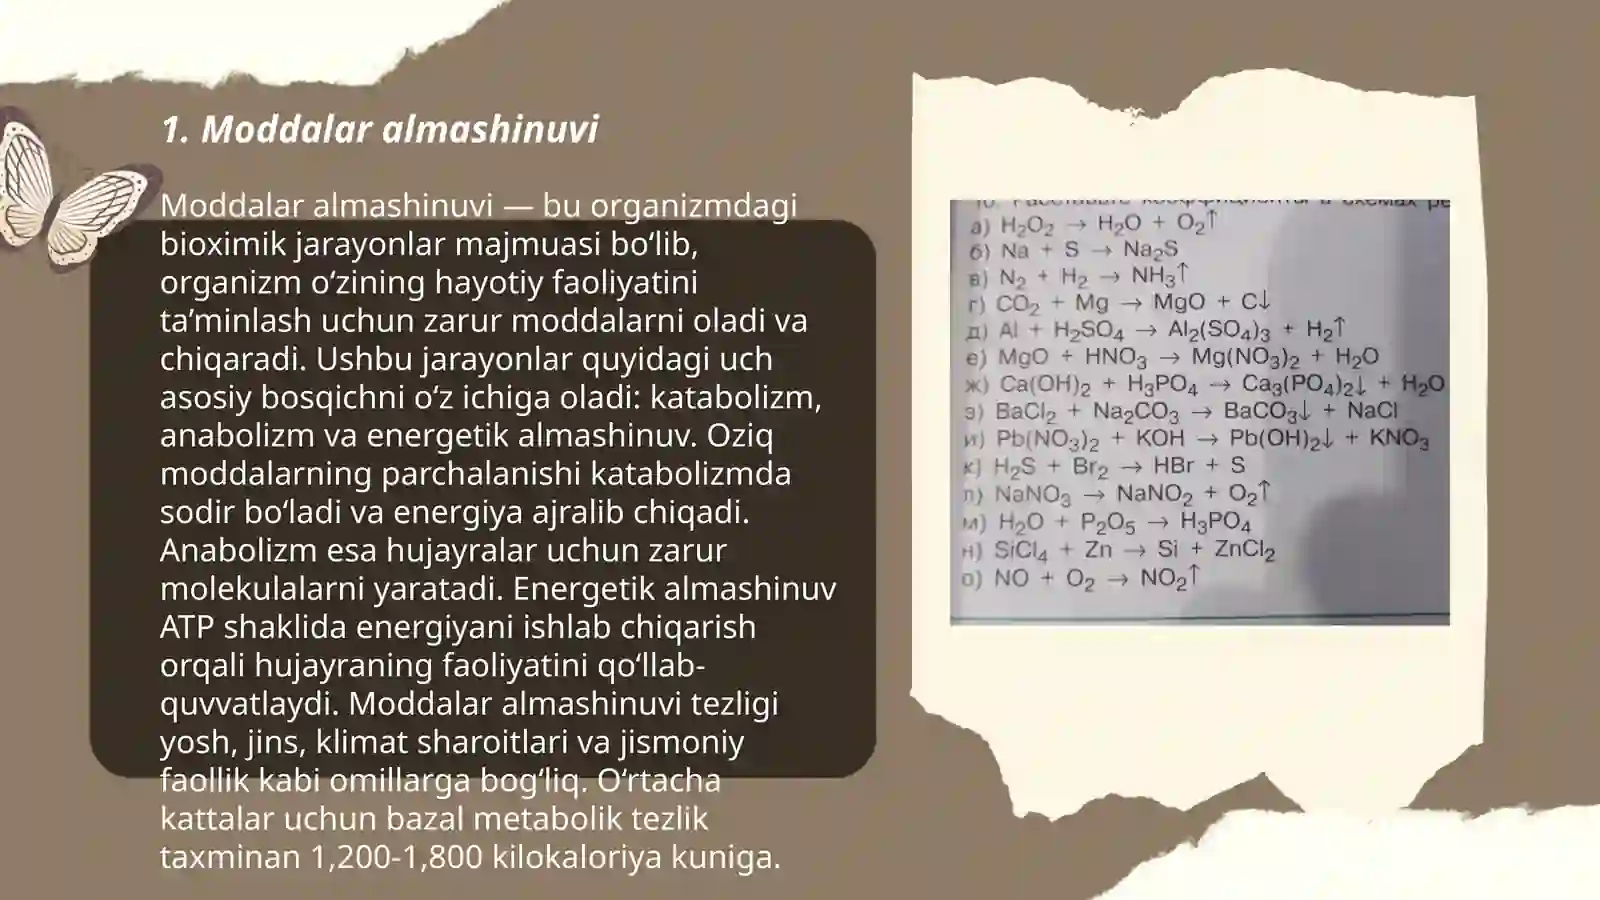 1. Moddalar almashinuvi
Moddalar almashinuvi — bu organizmdagi
bioximik jarayonlar majmuasi bo‘lib,
organizm o‘zining hayotiy faoliyatini
ta’minlash uchun zarur moddalarni oladi va
chiqaradi. Ushbu jarayonlar quyidagi uch
asosiy bosqichni o‘z ichiga oladi: katabolizm,
anabolizm va energetik almashinuv. Oziq
moddalarning parchalanishi katabolizmda
sodir bo‘ladi va energiya ajralib chiqadi.
Anabolizm esa hujayralar uchun zarur
molekulalarni yaratadi. Energetik almashinuv
ATP shaklida energiyani ishlab chiqarish
orqali hujayraning faoliyatini qo‘llab-
quvvatlaydi. Moddalar almashinuvi tezligi
yosh, jins, klimat sharoitlari va jismoniy
faollik kabi omillarga bog‘liq. O‘rtacha
kattalar uchun bazal metabolik tezlik
taxminan 1,200-1,800 kilokaloriya kuniga.
а) H₂O₂ → H₂O + O₂↑
б) Na + S → Na₂S
в) N₂ + H₂ → NH₃↑
г) CO₂ + Mg → MgO + C↓
д) Al + H₂SO₄ → Al₂(SO₄)₃ + H₂↑
е) MgO + HNO₃ → Mg(NO₃)₂ + H₂O
ж) Ca(OH)₂ + H₃PO₄ → Ca₃(PO₄)₂↓ + H₂O
з) BaCl₂ + Na₂CO₃ → BaCO₃↓ + NaCl
и) Pb(NO₃)₂ + KOH → Pb(OH)₂↓ + KNO₃
к) H₂S + Br₂ → HBr + S
л) NaNO₃ → NaNO₂ + O₂↑
м) H₂O + P₂O₅ → H₃PO₄
н) SiCl₄ + Zn → Si + ZnCl₂
о) NO + O₂ → NO₂↑